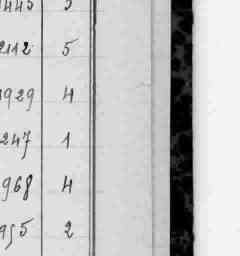 1445 5
2112 5
1929 4
247 1
968 4
995 2